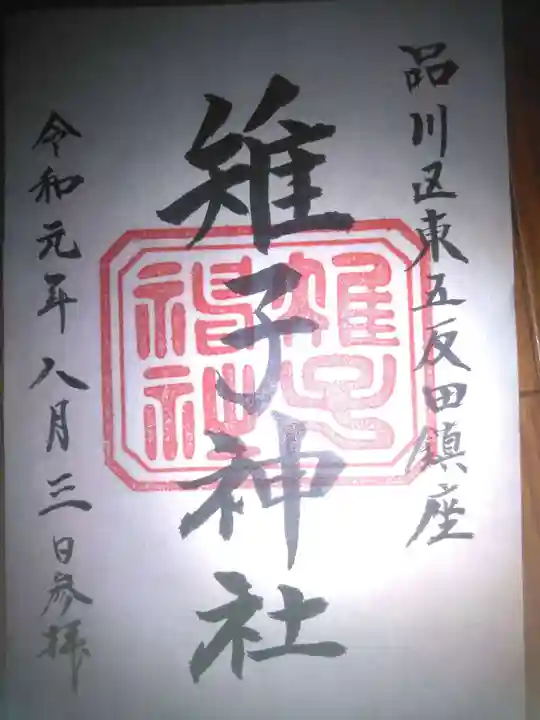 品川区東五反田鎮座
雉子神社
令和元年八月三日参拝